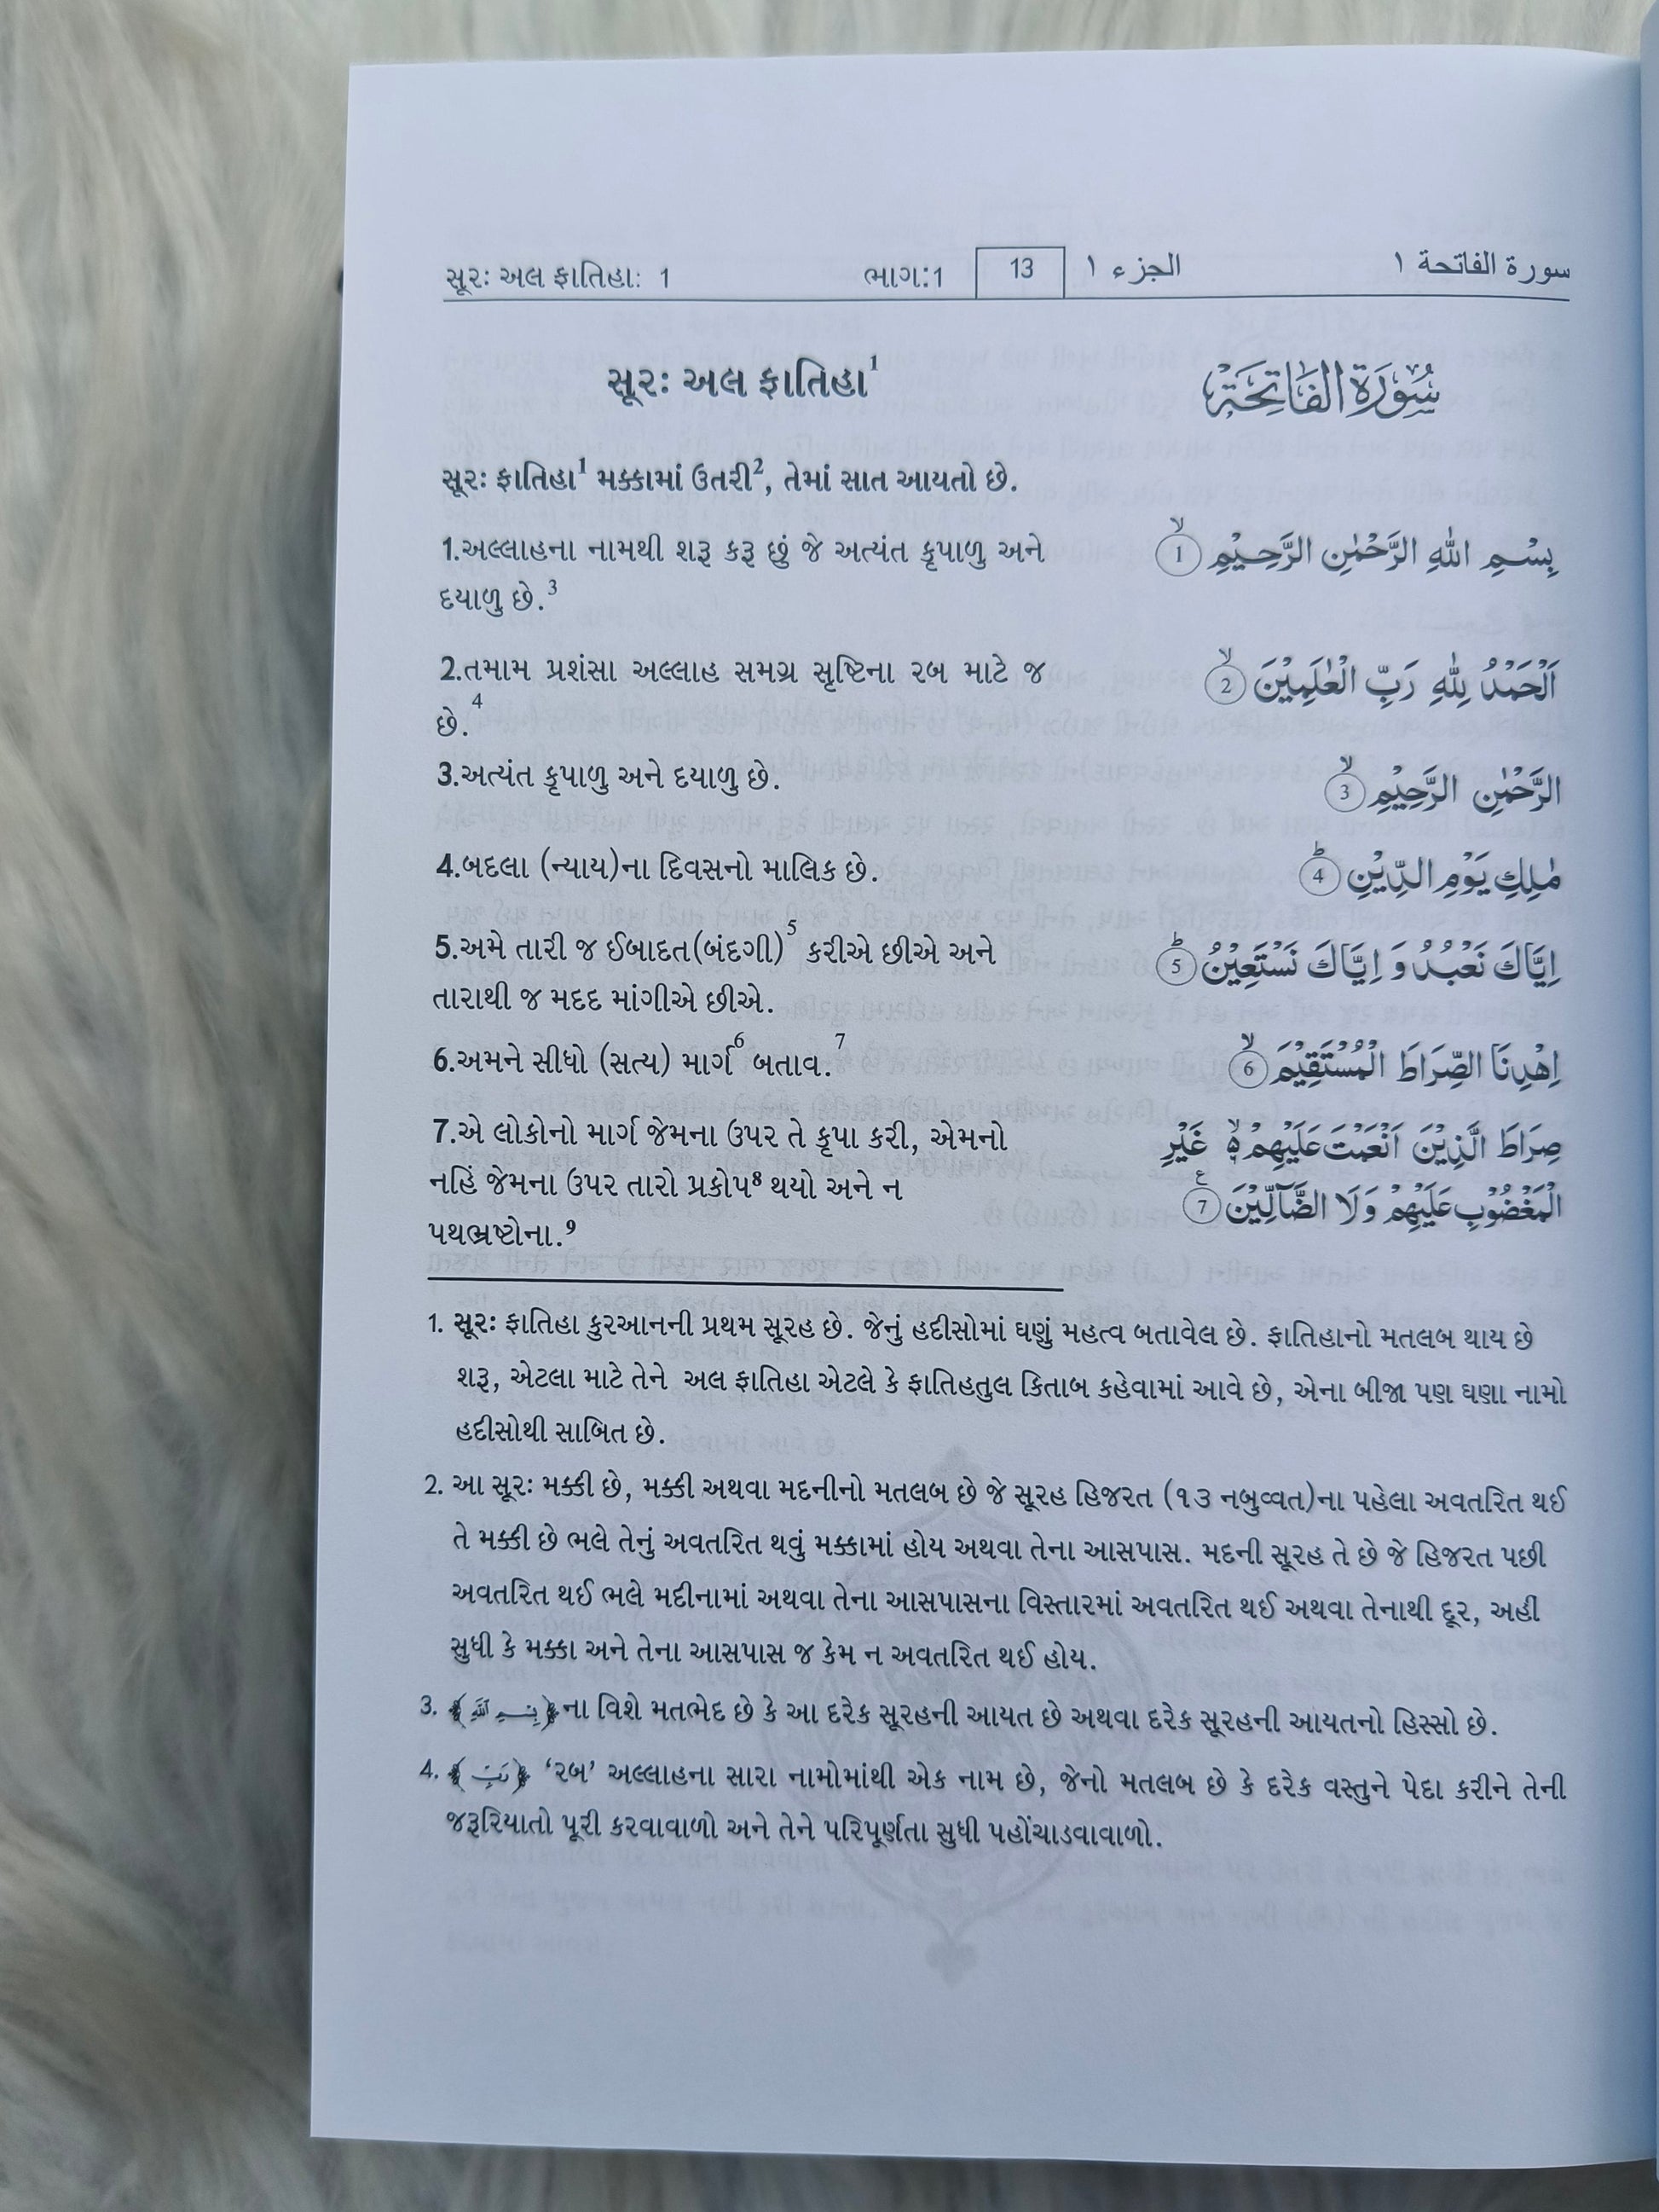 સૂરઃ અલ ફાતિહાઃ 1 ભાગ:1 13 الجزء ١ سورة الفاتحة ١
સૂરઃ અલ ફાતિહા¹ سُوْرَةُ الْفَاتِحَةِ
સૂરઃ ફાતિહા¹ મક્કામાં ઉતરી², તેમાં સાત આયતો છે.
1.અલ્લાહના નામથી શરૂ કરૂ છું જે અત્યંત કૃપાળુ અને
દયાળુ છે.³
بِسْمِ اللّٰهِ الرَّحْمٰنِ الرَّحِيْمِ ۙ 1
2.તમામ પ્રશંસા અલ્લાહ સમગ્ર સૃષ્ટિના રબ માટે જ
છે.⁴
اَلْحَمْدُ لِلّٰهِ رَبِّ الْعٰلَمِيْنَ ۙ 2
3.અત્યંત કૃપાળુ અને દયાળુ છે.
الرَّحْمٰنِ الرَّحِيْمِ ۙ 3
4.બદલા (ન્યાય)ના દિવસનો માલિક છે.
مٰلِكِ يَوْمِ الدِّيْنِ ؕ 4
5.અમે તારી જ ઈબાદત(બંદગી)⁵ કરીએ છીએ અને
તારાથી જ મદદ માંગીએ છીએ.
اِيَّاكَ نَعْبُدُ وَ اِيَّاكَ نَسْتَعِيْنُ ؕ 5
6.અમને સીધો (સત્ય) માર્ગ⁶ બતાવ.⁷
اِهْدِنَا الصِّرَاطَ الْمُسْتَقِيْمَ ۙ 6
7.એ લોકોનો માર્ગ જેમના ઉપર તે કૃપા કરી, એમનો
નહિં જેમના ઉપર તારો પ્રકોપ⁸ થયો અને ન
પથભ્રષ્ટોના.⁹
صِرَاطَ الَّذِيْنَ اَنْعَمْتَ عَلَيْهِمْ ۙ۬ غَيْرِ
الْمَغْضُوْبِ عَلَيْهِمْ وَلَا الضَّآلِّيْنَ ع 7
1. સૂરઃ ફાતિહા કુરઆનની પ્રથમ સૂરહ છે. જેનું હદીસોમાં ઘણું મહત્વ બતાવેલ છે. ફાતિહાનો મતલબ થાય છે
શરૂ, એટલા માટે તેને અલ ફાતિહા એટલે કે ફાતિહતુલ કિતાબ કહેવામાં આવે છે, એના બીજા પણ ઘણા નામો
હદીસોથી સાબિત છે.
2. આ સૂરઃ મક્કી છે, મક્કી અથવા મદનીનો મતલબ છે જે સૂરહ હિજરત (૧૩ નબુવ્વત)ના પહેલા અવતરિત થઈ
તે મક્કી છે ભલે તેનું અવતરિત થવું મક્કામાં હોય અથવા તેના આસપાસ. મદની સૂરહ તે છે જે હિજરત પછી
અવતરિત થઈ ભલે મદીનામાં અથવા તેના આસપાસના વિસ્તારમાં અવતરિત થઈ અથવા તેનાથી દૂર, અહીં
સુધી કે મક્કા અને તેના આસપાસ જ કેમ ન અવતરિત થઈ હોય.
3. ﴿بِسْمِ اللَّهِ﴾ના વિશે મતભેદ છે કે આ દરેક સૂરહની આયત છે અથવા દરેક સૂરહની આયતનો હિસ્સો છે.
4. ﴿رَبِّ﴾ ‘રબ’ અલ્લાહના સારા નામોમાંથી એક નામ છે, જેનો મતલબ છે કે દરેક વસ્તુને પેદા કરીને તેની
જરૂરિયાતો પૂરી કરવાવાળો અને તેને પરિપૂર્ણતા સુધી પહોંચાડવાવાળો.